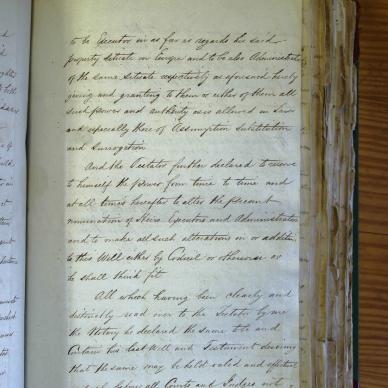 to be Executor in as far as regards his said
property situate in Europe and to be also Administrator
of the same situate respectively as aforesaid hereby
giving and granting to them or either of them all
such power and authority as is allowed in Law
and especially those of Assumption Substitution
and Surrogation
And the Testator further declared to reserve
to himself the power from time to time and
at all times hereafter to alter the present
nomination of Heirs Executors and Administrators
and to make all such alterations in or addition
to this Will either by Codicil or otherwise as
he shall think fit
All which having been clearly and
distinctly read over to the Testator by me
the Notary he declared the same to be and
Contain his last Will and Testament desiring
that the same may be held valid and effectual
before all Courts and Judges